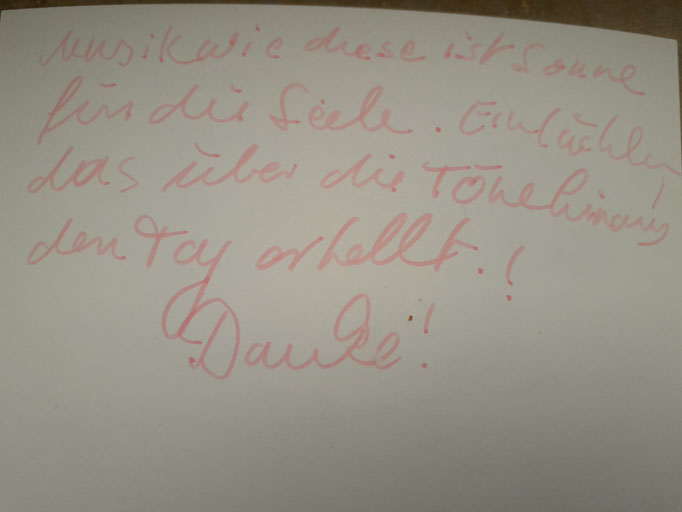 Musik wie diese ist Sonne
für die Seele. Ein Lächeln,
das über die Töne hinaus
den Tag erhellt.!
Danke!